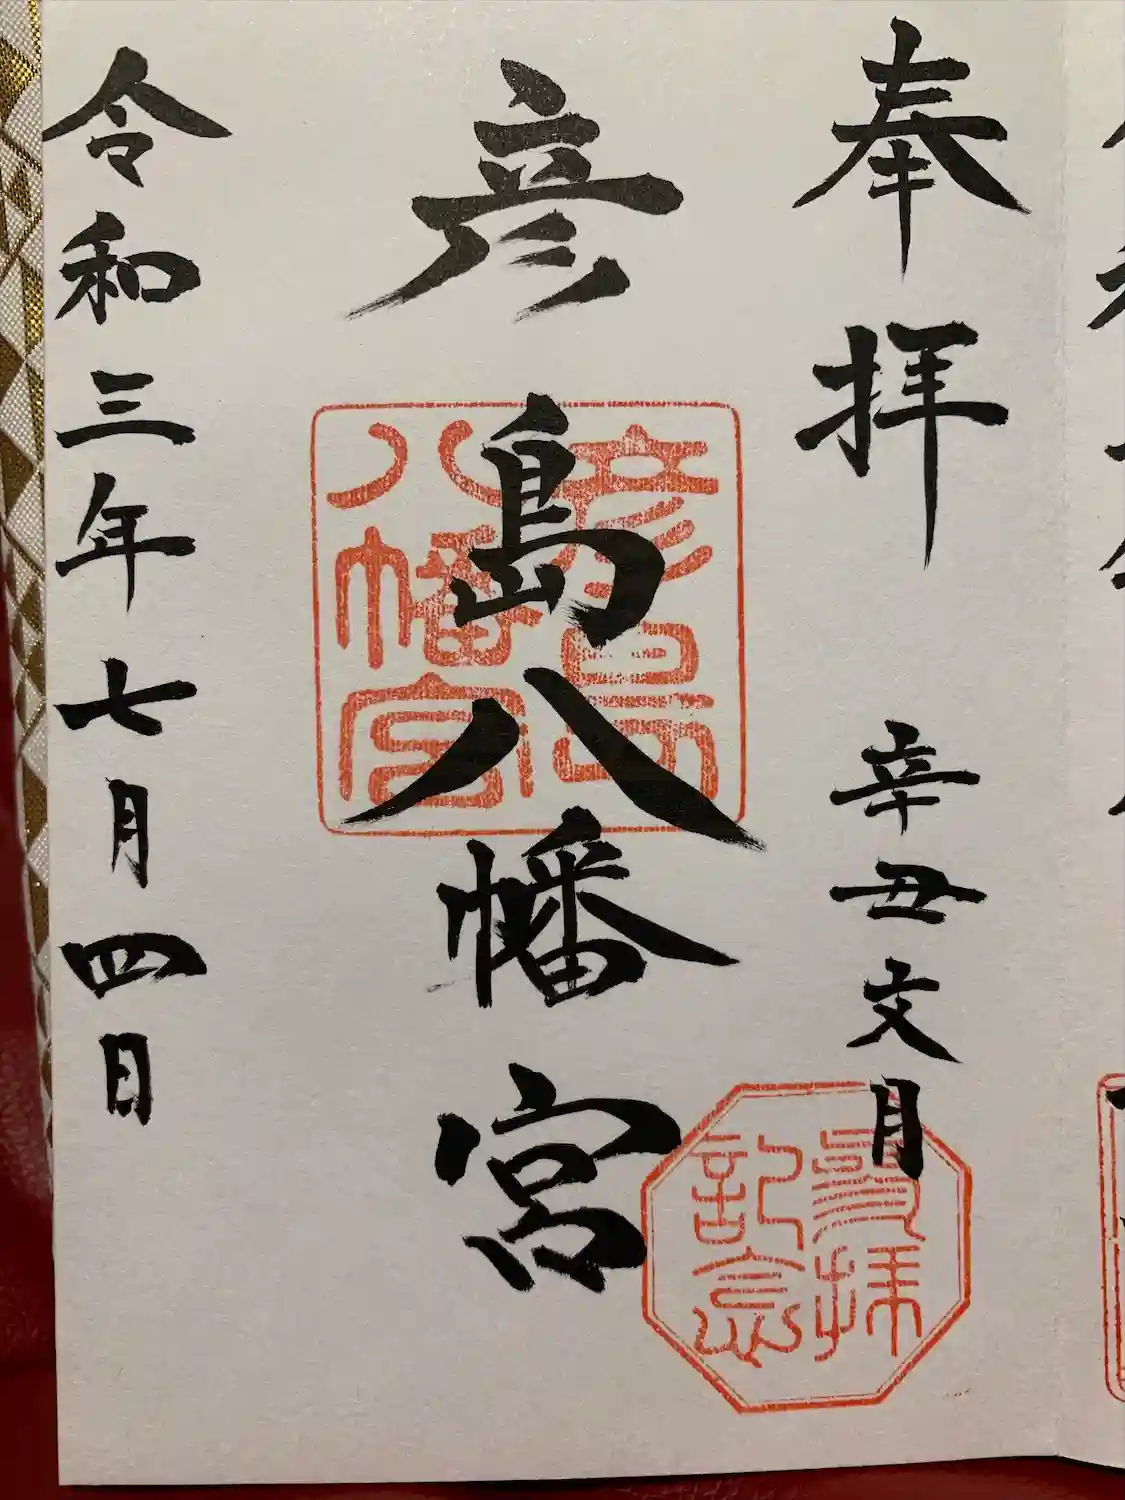 奉拝
辛丑文月
彦島八幡宮
彦島
八幡宮
参拝
記念
令和三年七月四日